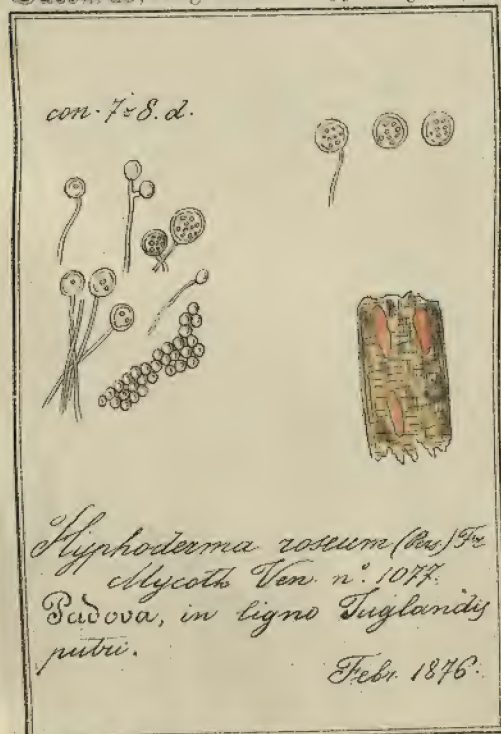 con. 7-8. d.
Hyphoderma roseum (Pers) Fr
Mycoth Ven. n°. 1077.
Padova, in ligno Juglandis
putri.
Febr. 1876.